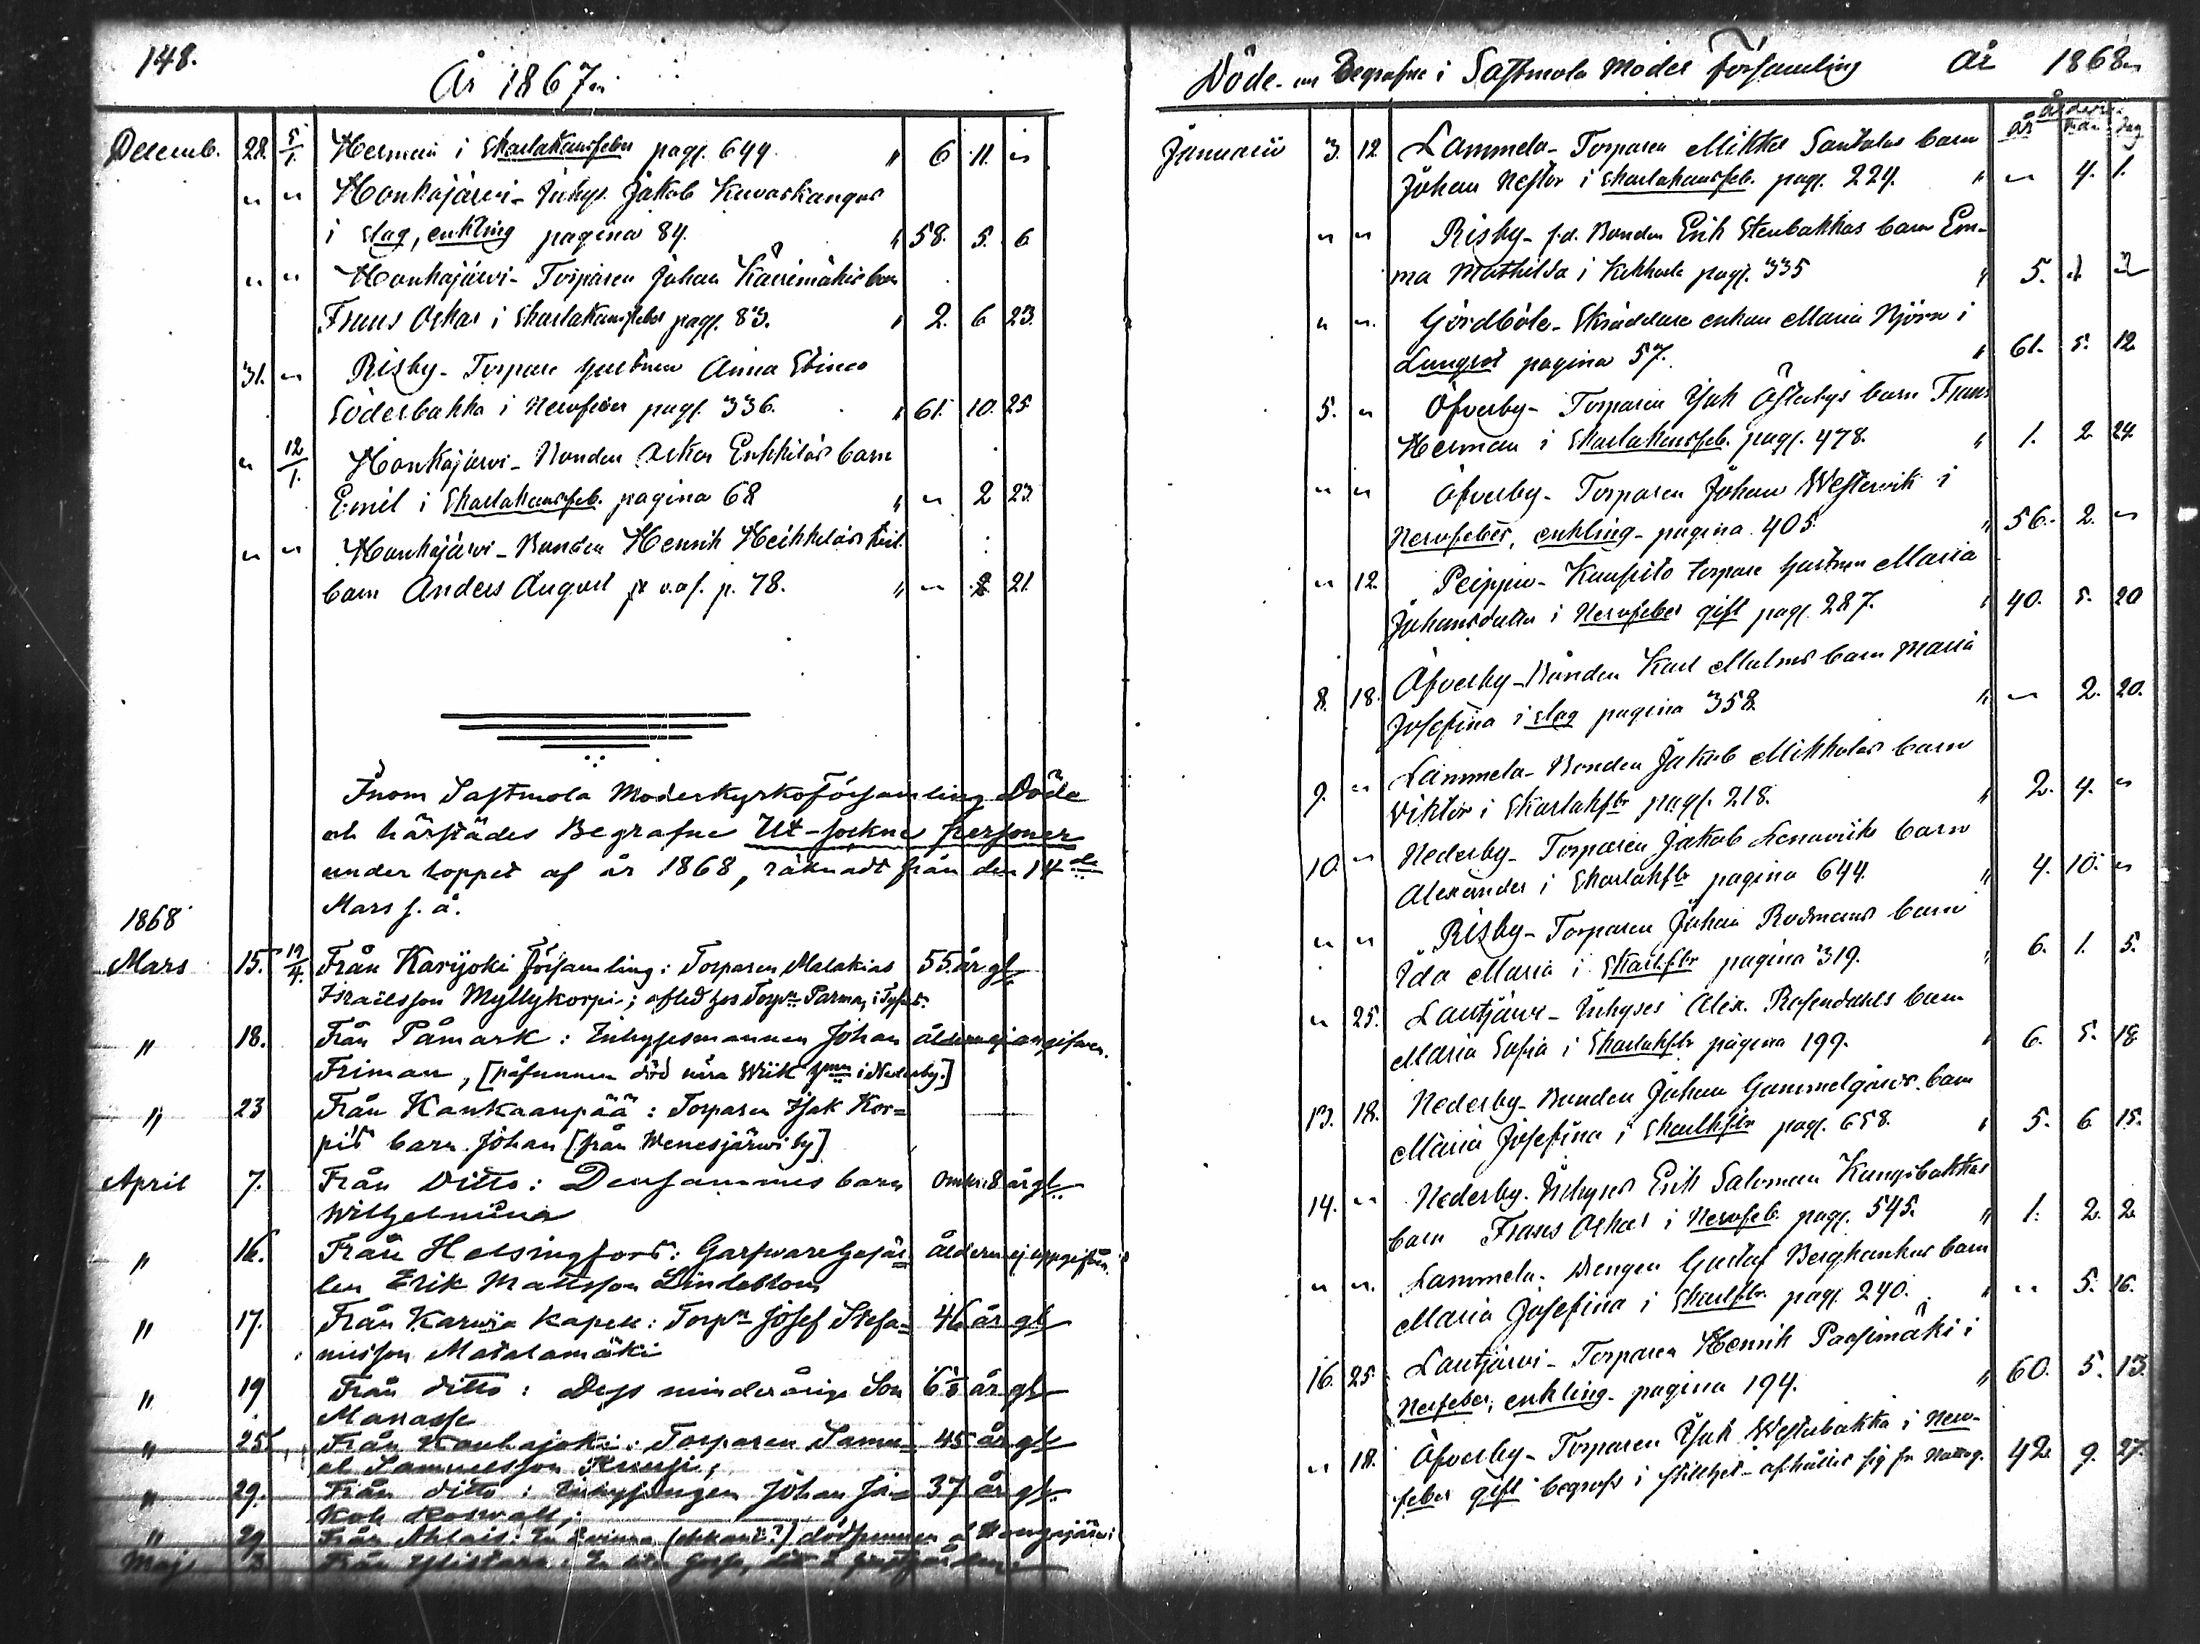 148.
År 1867
Decemb. 28. 5/1. Herman i Skarlakansfeber pag. 644. " 6 11.
Honkajärvi - Inhys. Jakob Kuvaskangas
i slag, enkling pagina 84. " 58. 5. 6
Honkajärvi - Torparen Johan Kärrimäkis barn
Frans Oskar i Skarlakansfeber pag. 83. " 2. 6 23.
31. Risby - Torpare hustrun Anna
Söderbakka i Nervfeber pag. 336. " 61. 10. 25
12/1. Honkajärvi - Bonden Oskar Enkkilas barn
Emil i Skarlakansfeb. pagina 68 " 2 23.
Honkajärvi - Bonden Henrik Heikkiläs
barn Anders August p. 78. " 2. 21.
Inom Sastmola Moderkyrkoförsamling Döde
och härstädes Begrafne Ut-sockne personer
under loppet af år 1868, räknadt från den 14de
Mars s. å.
1868
Mars 15. 12/4. Från Karijoki Församling: Torparen Malakias 55. år gl
Israelsson Myllykorpi; afled hos Torpn Parma, i Tyfus.
" 18. Från Påmark: Inhysesmannen Johan åldern ej angifven.
Friman, [påfunnen död nära Wiik hmn i Nederby.]
" 23 Från Kankaanpää: Torparen Isak Kor=
pis barn Johan [från Wenesjärwi by]
April 7. Från Ditto: Densammes barn omkr. 8 år gl.
Wilhelmina
" 16. Från Helsingfors: Garfwaregesäl= åldern ej uppgifven
len Erik Mattsson Lindeblom
" 17. Från Karwia kapell: Torpn Josef Stefa= 46 år gl
nusson Matalamäki
" 19 Från ditto: Dess minderårige Son 6 år gl
Manasse
" 25. Från Kauhajoki: Torparen Samu= 45 år gl
el Samuelsson
" 29. Från ditto: Johan Ja= 37 år gl.
kob
" 29 Från Ahlais: En dödfunnen
Maj 3 Från Ylistaro: En
Döde och Begrafne i Sastmola Moder Församling År 1868
Ålder
år mån. dag
Januarii 3. 12 Lammela - Torparen Mikkel Santalas barn
Johan Nestor i Skarlakansfeb. pag. 224. " 4. 1.
Risby - f.d. Bonden Erik Stenbakkas barn Em-
ma Mathilda i Kikhosta pag. 335 " 5.
Gördböle - Skräddare enkan Maria Björn i
Lungsot pagina 57. " 61. 5. 12
5. Öfverby - Torparen Isak Österbys barn Frans
Herman i Skarlakansfeb. pag. 478. " 1. 2 24.
Öfverby - Torparen Johan Westervik i
Nervfeber, enkling - pagina 405 " 56. 2.
12. Peippu - Kuusisto torpare hustrun Maria
Johansdotter i Nervfeber gift pag. 287. " 40. 5. 20
8. 18. Öfverby - Bonden Karl Malms barn Maria
Josefina i slag pagina 358. " 2. 20.
9. Lammela - Bonden Jakob Mikkolas barn
Viktor i Skarlakfbr pag. 218. " 2. 4.
10. Nederby - Torparen Jakob barn
Alexander i Skarlakfbr pagina 644. " 4. 10.
Risby - Torparen Johan Rodmans barn
Ida Maria i Skarlfbr pagina 319. " 6. 1. 5.
25. Lautjärvi - Inhyses Alex. Rosendahls barn
Maria Sofia i Skarlakfbr pagina 199. " 6. 5. 18.
13. 18. Nederby - Bonden Johan Gammelgårds barn
Maria Josefina i Skarlkfbr pag. 658. " 5. 6 15.
14. Nederby. Inhyses Erik Salomon Kungsbakkas
barn Frans Oskar i Nervfeb. pag. 545. " 1. 2. 2
Lammela. Drengen Gustaf Berghankas barn
Maria Josefina i Skarlfbr. pag. 240. " 5. 16.
16. 25. Lautjärvi - Torparen Henrik Passimäki i
Nerfeber, enkling - pagina 194. " 60. 5. 13.
18. Öfverby - Torparen Isak Westerbakka i Nerv-
feber gift begrofs i stillhet - afhållit sig fr. Nattvg. 42. 9. 27.